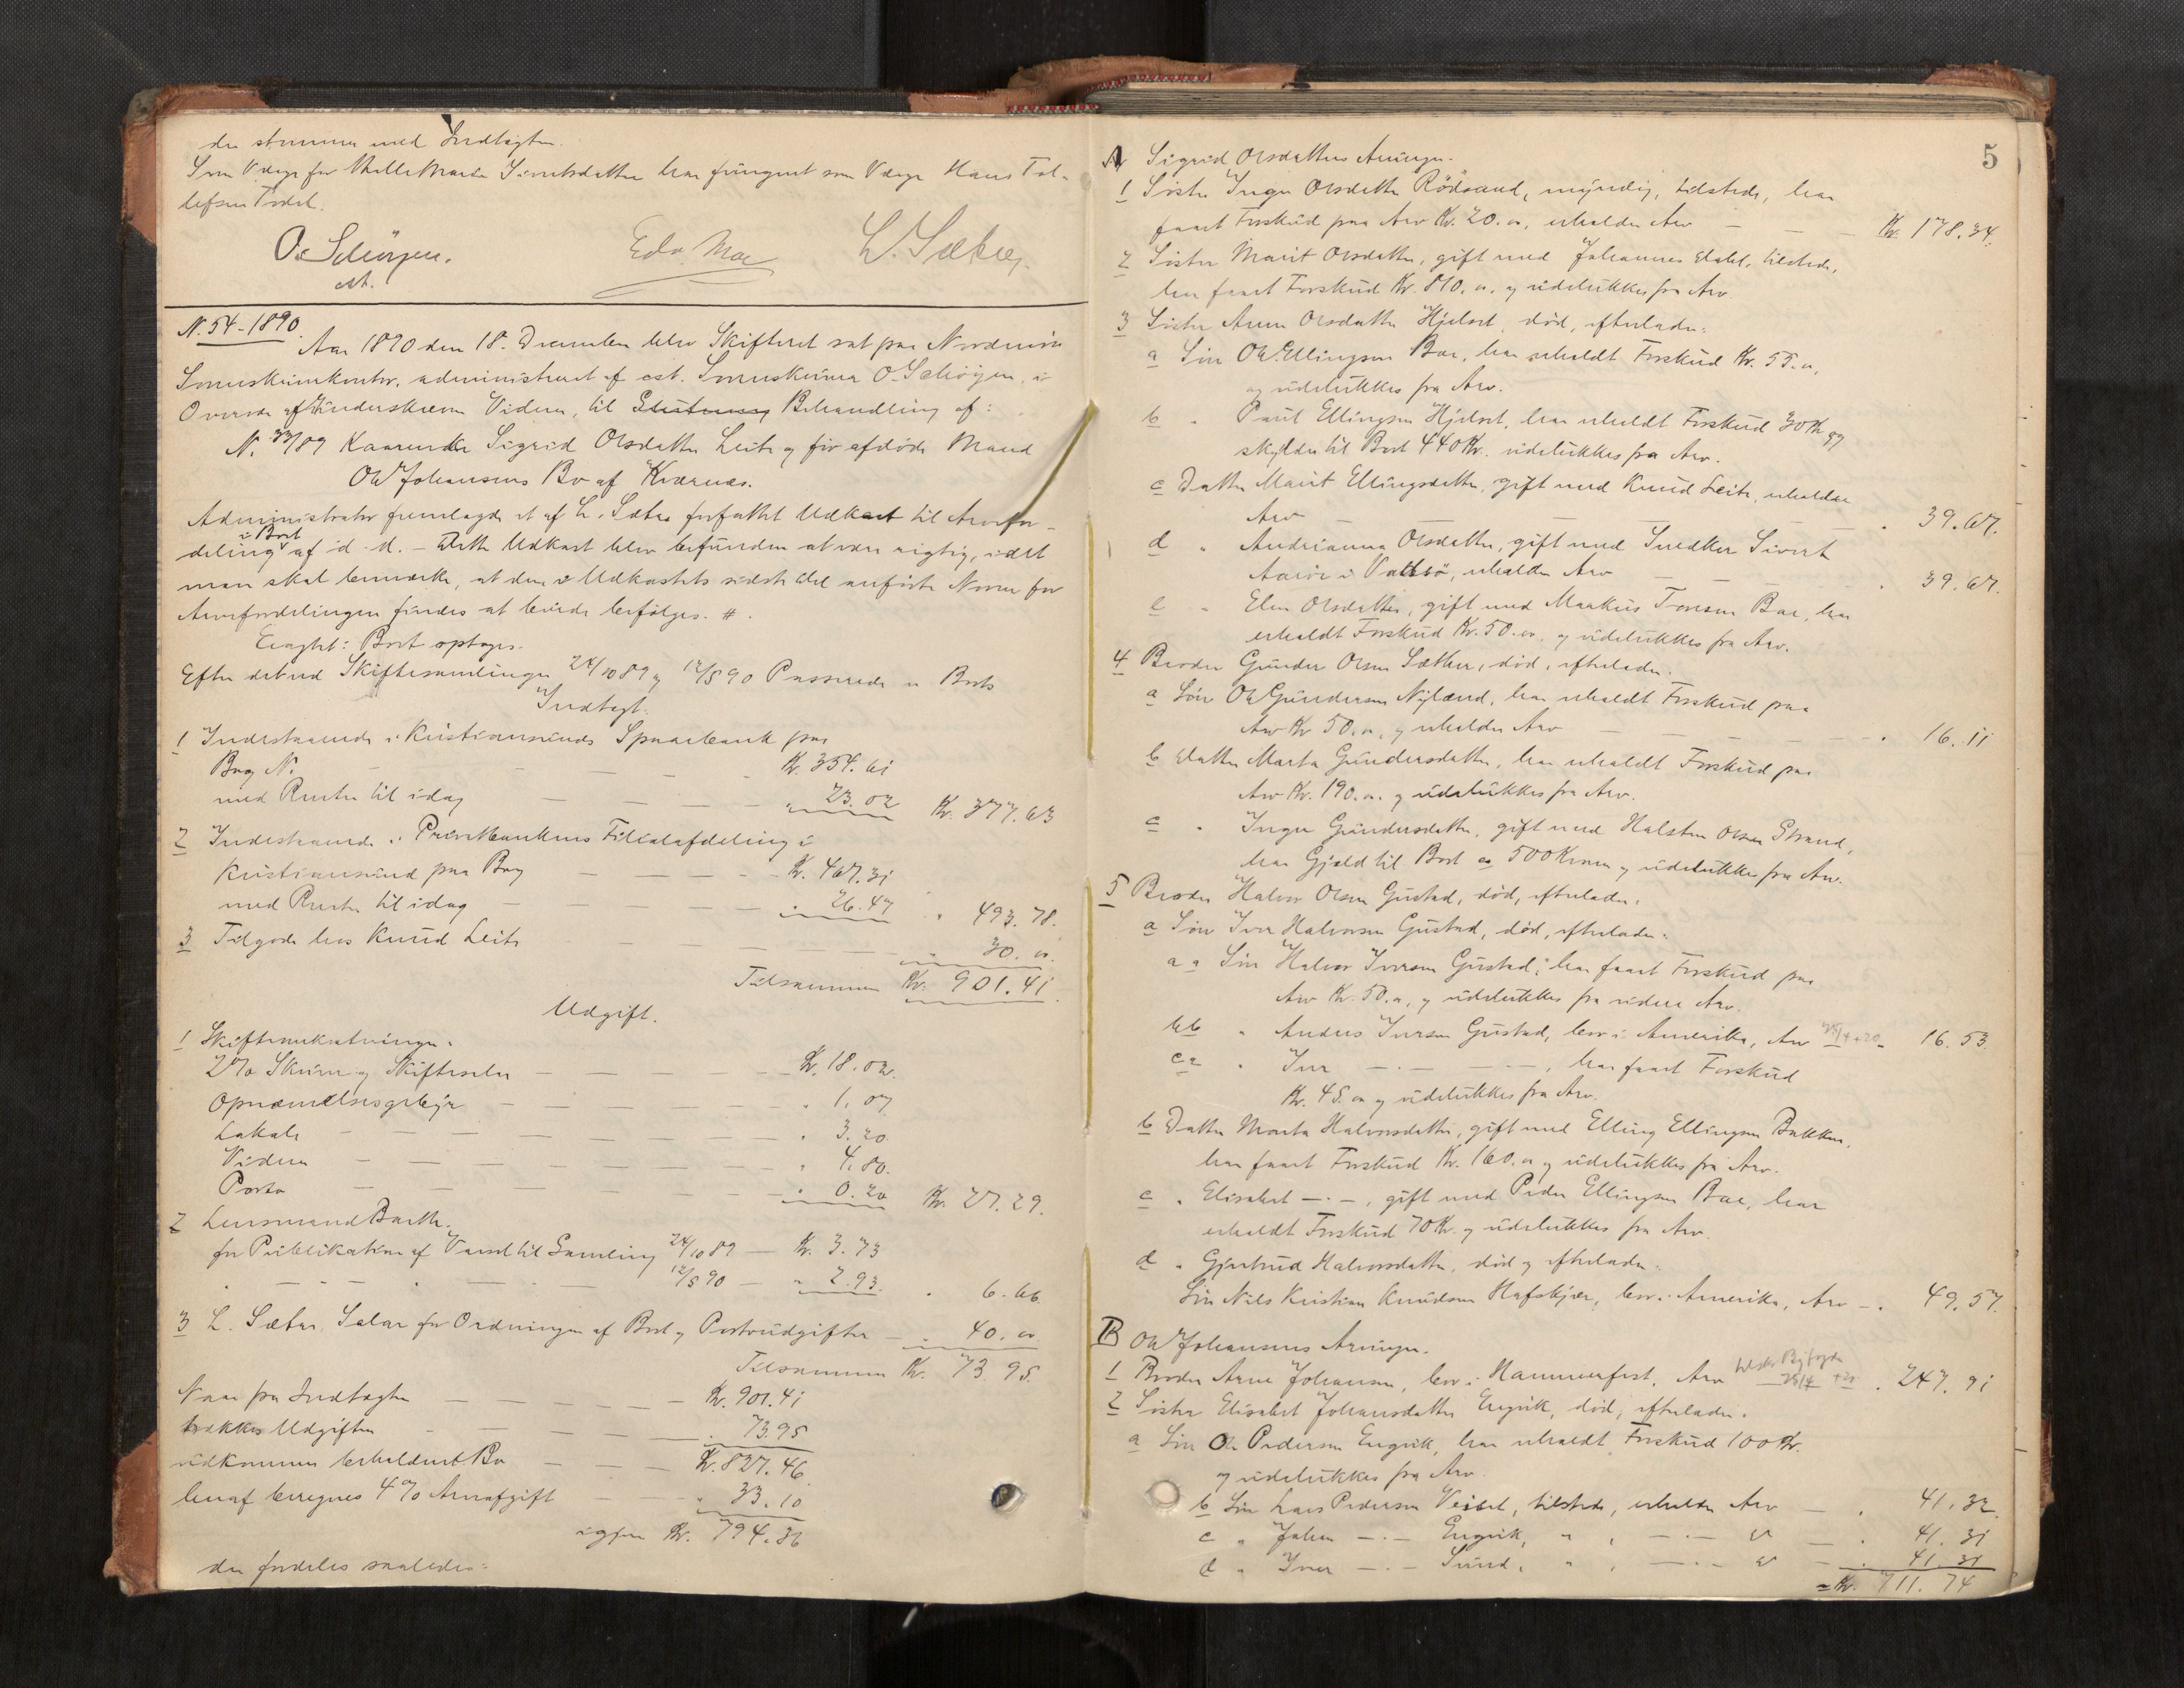 der stemmer med Indtægten.
Som Værge for Malle Marie Sivertsdatter har fungeret som Værge Hans Tol-
lefsen Todal.
O. Schöyen.
cst.
Edv. Moe
L. Sæbøe.
N. 54-1890.
Aar 1890 den 18. December blev Skifteret sat paa Nordmöre
Sorenskriverkontor, administreret af cst. Sorenskriver O. Schöyen, i
Overvær af underskrevne Vidner, til Slutning Behandling af:
N. 33/89 Kaarenke Sigrid Olsdatter Leite og før afdöde Mand
Ole Johansens Bo af Kværnes.
Administrator fremlagde et af L. Sæbøe forfattet Udkast til Arvefor-
deling i Boet af i d. M. – Dette Udkast blev befunden at være rigtig, idet
man skal bemærke, at den i Udkastets sidste Del anförte Norm for
Arvefordelingen findes at burde befölges. #.
Eragtet: Boet optages.
Efter det ved Skiftesamlinger 24/10 89 og 12/5 90 Passerede er Boets
Indtægt.
1 Indestaaende i Kristiansunds Sparebank paa
Bog N. – – – – Kr. 354.61
med Renter til idag – – – – " 23.02 Kr. 377.63
2 Indestaaende i Privatbankens Filialafdeling i
Kristiansund paa Bog – – – – Kr. 467.31
med Renter til idag – – – – " 26.47 " 493.78.
3 Tilgode hos Knud Leite – – – – " 30.00.
Tilsammen Kr. 901.41.
Udgift.
1 Skifteomkostninger.
2% Skriver og Skiftesaler – – – – Kr. 18.02.
Opnævnelsesgebyr – – – – " 1.07
Lokale – – – – " 3.20.
Vidner – – – – " 4.80.
Porto – – – – " 0.20 Kr. 27.29.
2 Lensmand Barth.
for Publikation af Varsel til Samling 24/10 89 – Kr. 3.73
" – " – " – 12/5 90 – " 2.93. " 6.66.
3 L. Sæbøe, Salær for Ordningen af Boet og Portoudgifter – " 40.00
Tilsammen Kr. 73.95.
Naar fra Indtægten – – – – Kr. 901.41
trækkes Udgiften – – – – " 73.95
udkommer beholdent Bo – – – Kr. 827.46
heraf beregnes 4% Arveafgift – – " 33.10
igjen Kr. 794.36
der fordeles saaledes:
5
A Sigrid Olsdatters Arvinger.
1 Söster Inger Olsdatter Rödsand, myndig, tilstede, har
faaet Forskud paa Arv Kr. 20.00, erholder Arv – – – Kr. 178.34.
2 Söster Marit Olsdatter, gift med Johannes, tilstede,
har faaet Forskud Kr. 810.00. og udelukkes fra Arv.
3 Söster Anne Olsdatter Hjelset, död, efterlader:
a Sön Ole Ellingsen Bae, har erholdt Forskud Kr. 55.00,
og udelukkes fra Arv.
b " Paul Ellingsen Hjelset, har erholdt Forskud 30 Kr og
skylder til Boet 440 Kr. udelukkes fra Arv.
c Datter Marit Ellingsdatter, gift med Knud Leite, erholder
Arv – – – – " 39.67.
d " Andrianna Olsdatter, gift med Snedker Sivert
i Valsö, erholder Arv – – – " 39.67.
e " Elen Olsdatter, gift med Markus Bae, har
erholdt Forskud Kr. 50.00. og udelukkes fra Arv.
4 Broder Gunder Olsen Sæther, död, efterlader:
a Sön Ole Gundersen Nyland, har erholdt Forskud paa
Arv Kr 50.00, og erholder Arv – – – – " 16.11
b Datter Marta Gundersdatter, har erholdt Forskud paa
Arv Kr. 190.00. og udelukkes fra Arv.
c " Inger Gundersdatter, gift med Halsten Olsen Strand,
har Gjæld til Boet ca 500 Kroner og udelukkes fra Arv.
5 Broder Halvor Olsen Gustad, död, efterlader:
a Sön Iver Halvorsen Gustad, död, efterlader:
aa Sön Halvor Iversen Gustad, har faaet Forskud paa
Arv Kr. 50.00, og udelukkes fra videre Arv.
bb " Anders Iversen Gustad, bor i Amerika, Arv " 16.53.
cc " Iver –"– –"–, har faaet Forskud
Kr. 45.00 og udelukkes fra Arv.
b Datter Marta Halvorsdatter, gift med Elling Ellingsen Bakken,
har faaet Forskud Kr. 160.00 og udelukkes fra Arv.
c " Elisabet –"–, gift med Peder Ellingsen Bae, har
erholdt Forskud 70 Kr. og udelukkes fra Arv.
d " Gjertrud Halvorsdatter, död og efterlader:
Sön Nils Kristian Knudsen Hafskjær, bor i Amerika, Arv – " 49.57.
B Ole Johansens Arvinger.
1 Broder Arne Johansen, bor i Hammerfest, Arv " 247.91
2 Söster Elisabet Johansdatter Engvik, död, efterlader:
a Sön Ole Pedersen Engvik, har erholdt Forskud 100 Kr.
og udelukkes fra Arv.
b Sön Lars Pedersen Veisel, tilstede, erholder Arv – " 41.32.
c " Johan –"– Engvik, " , –"– " – " 41.31
d " Iver –"– Sund, " , –"– " – " 41.31
Kr. 711.74